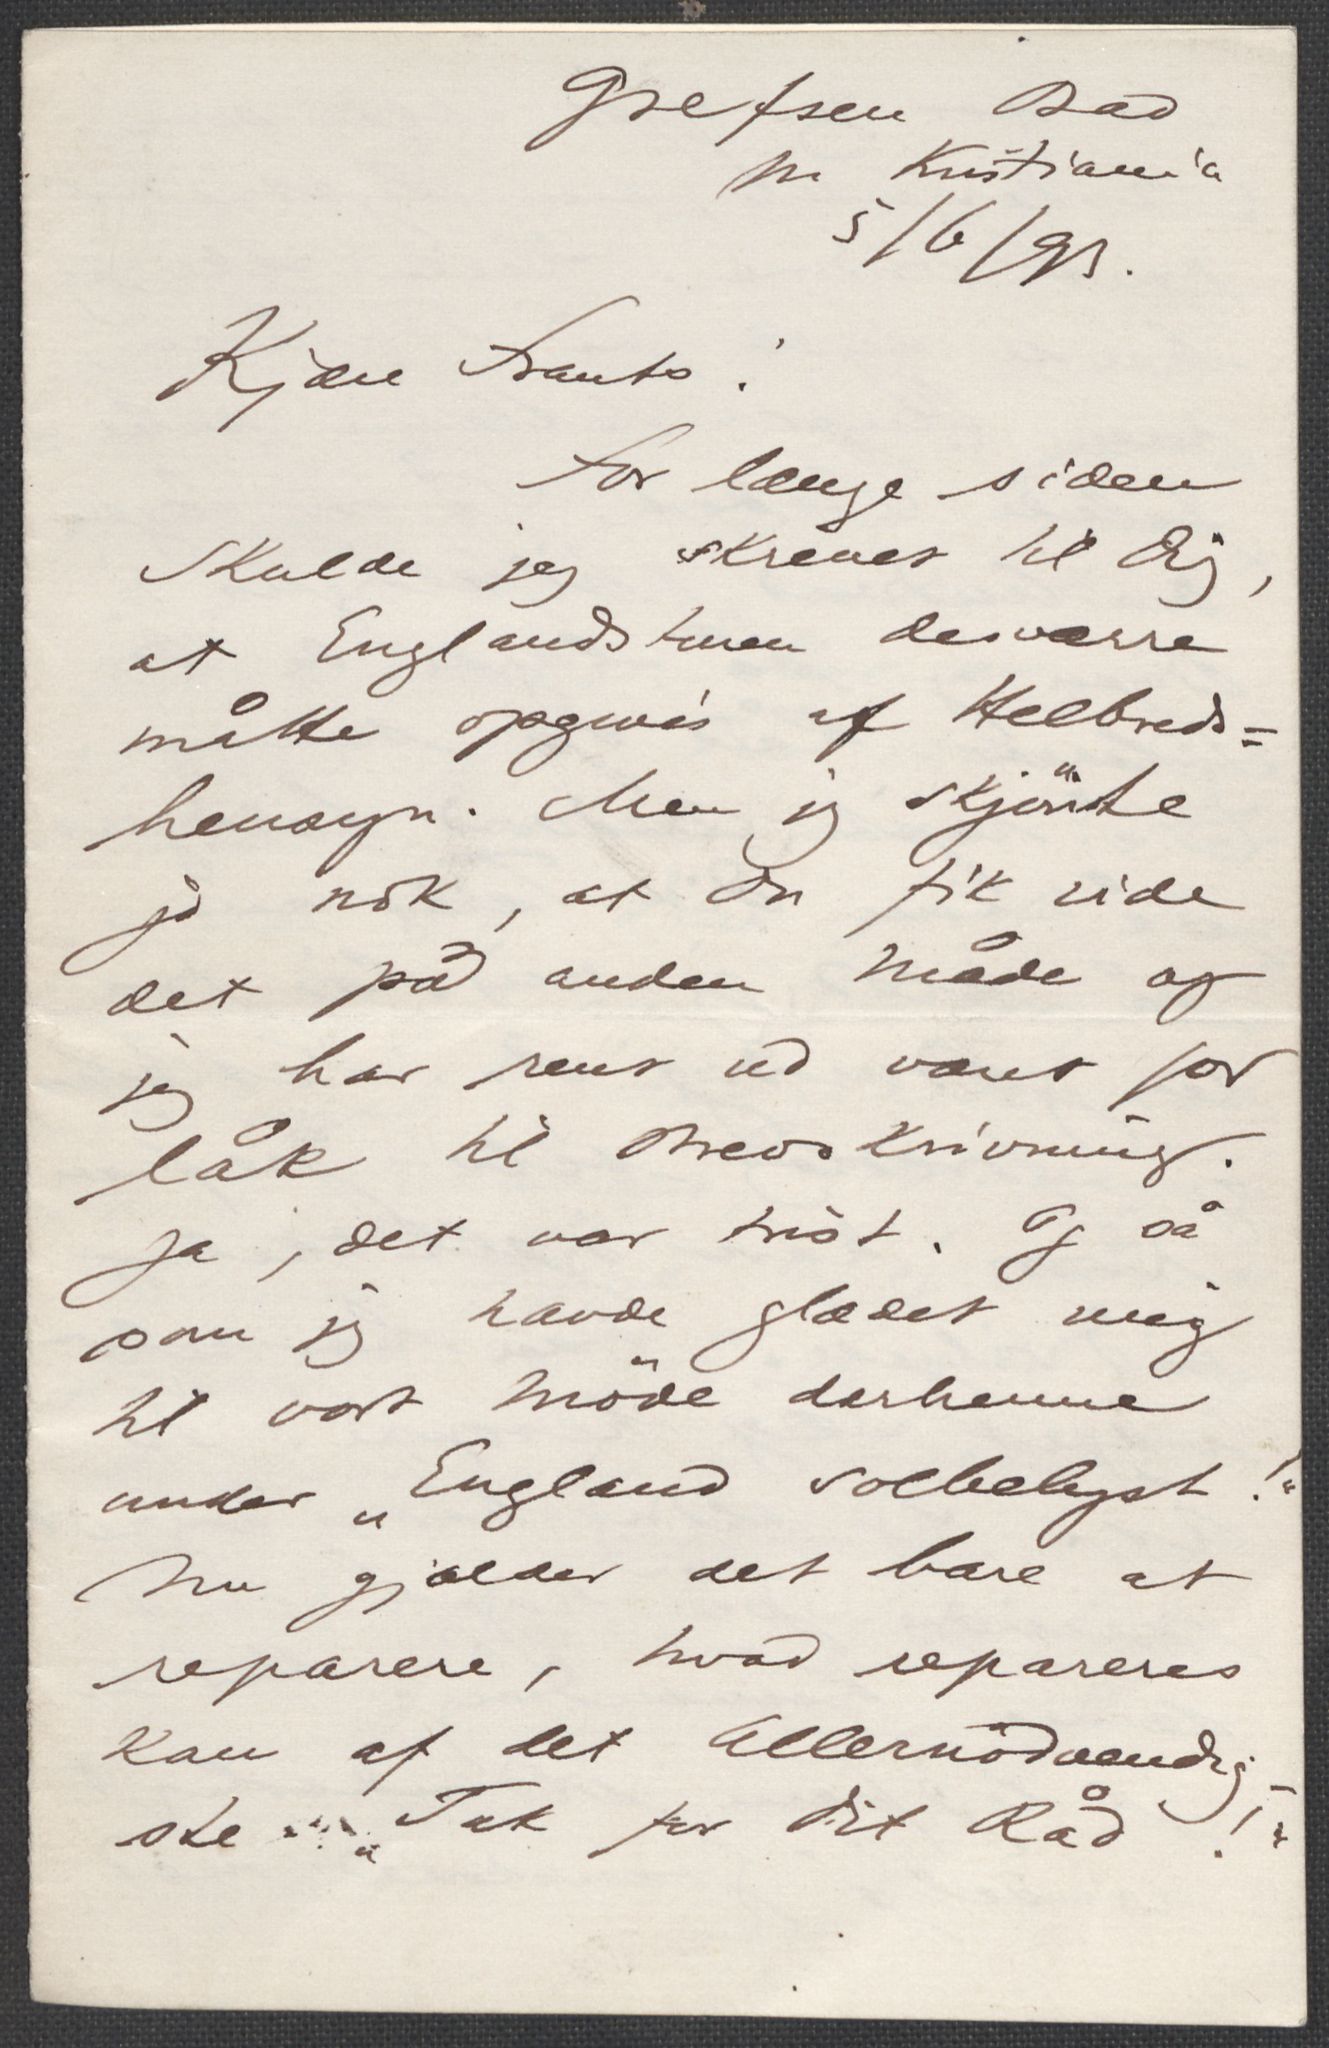 Grefsen Bad
pr Kristiania
5/6/93.
Kjære Frants!
For længe siden
skulde jeg skrevet til Dig,
at Englandsturen desværre
måtte opgives af Helbreds=
hensyn. Men jeg skjönte
jo nok, at Du fik vide
det på anden Måde og
jeg har rent ud været for
låk til Brevskrivning.
Ja, det var trist. Og så
som jeg havde glædet mig
til vort Möde derhenne
under „England solbelyst!“
Nu gjælder det bare at
reparere, hvad repareres
kan af det Allernödvendig-
ste. „Tak for Dit Råd!“